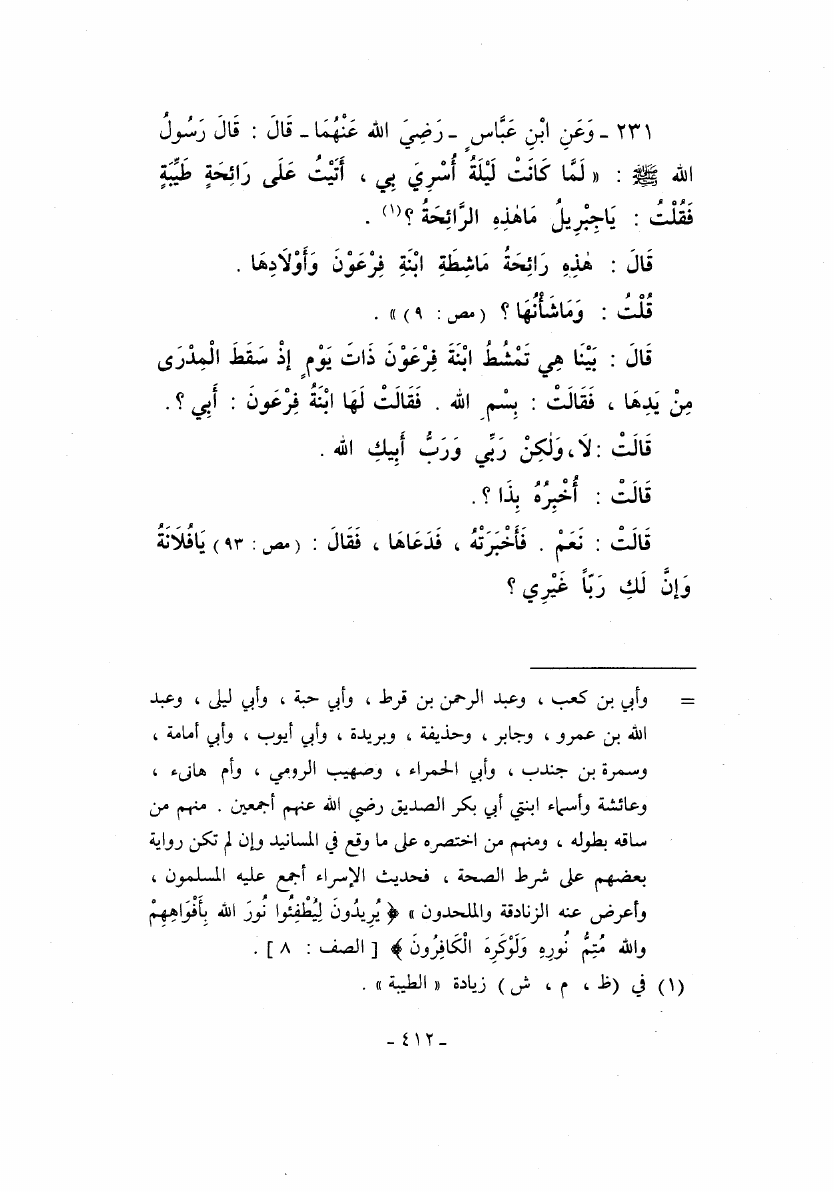 ٢٣١ - وَعَنِ ابْنِ عَبَّاسٍ - رَضِيَ الله عَنْهُمَا - قَالَ : قَالَ رَسُولُ
الله ﷺ : « لَمَّا كَانَتْ لَيْلَةُ أُسْرِيَ بِي ، أَتَيْتُ عَلَى رَائِحَةٍ طَيِّبَةٍ
فَقُلْتُ : يَاجِبْرِيلُ مَاهٰذِهِ الرَّائِحَةُ ؟(١) .
قَالَ : هٰذِهِ رَائِحَةُ مَاشِطَةِ ابْنَةِ فِرْعَوْنَ وَأَوْلَادِهَا .
قُلْتُ : وَمَاشَأْنُهَا ؟ ( مص : ٩ ) » .
قَالَ : بَيْنَا هِيَ تَمْشُطُ ابْنَةَ فِرْعَوْنَ ذَاتَ يَوْمٍ إذْ سَقَطَ الْمِدْرَى
مِنْ يَدِهَا ، فَقَالَتْ : بِسْمِ الله . فَقَالَتْ لَهَا ابْنَةُ فِرْعَونَ : أَبِي ؟ .
قَالَتْ : لَا ، وَلٰكِنْ رَبِّي وَرَبُّ أَبِيكِ الله .
قَالَتْ : أُخْبِرُهُ بِذَا ؟ .
قَالَتْ : نَعَمْ . فَأَخْبَرَتْهُ ، فَدَعَاهَا ، فَقَالَ : ( مص : ٩٣ ) يَافُلَانَةُ
وَإنَّ لَكِ رَبّاً غَيْرِي ؟
= وأبي بن كعب ، وعبد الرحمن بن قرط ، وأبي حبة ، وأبي ليلى ، وعبد
الله بن عمرو ، وجابر ، وحذيفة ، وبريدة ، وأبي أيوب ، وأبي أمامة ،
وسمرة بن جندب ، وأبي الحمراء ، وصهيب الرومي ، وأم هانىء ،
وعائشة وأسماء ابنتي أبي بكر الصديق رضي الله عنهم أجمعين . منهم من
ساقه بطوله ، ومنهم من اختصره على ما وقع في المسانيد وإن لم تكن رواية
بعضهم على شرط الصحة ، فحديث الإسراء أجمع عليه المسلمون ،
وأعرض عنه الزنادقة والملحدون » ﴿ يُرِيدُونَ لِيُطْفِئُوا نُورَ الله بِأَفْوَاهِهِمْ
والله مُتِمُّ نُورِهِ وَلَوْكَرِهَ الْكَافِرُونَ ﴾ [ الصف : ٨ ] .
(١) في (ظ ، م ، ش ) زيادة « الطيبة » .
- ٤١٢ -